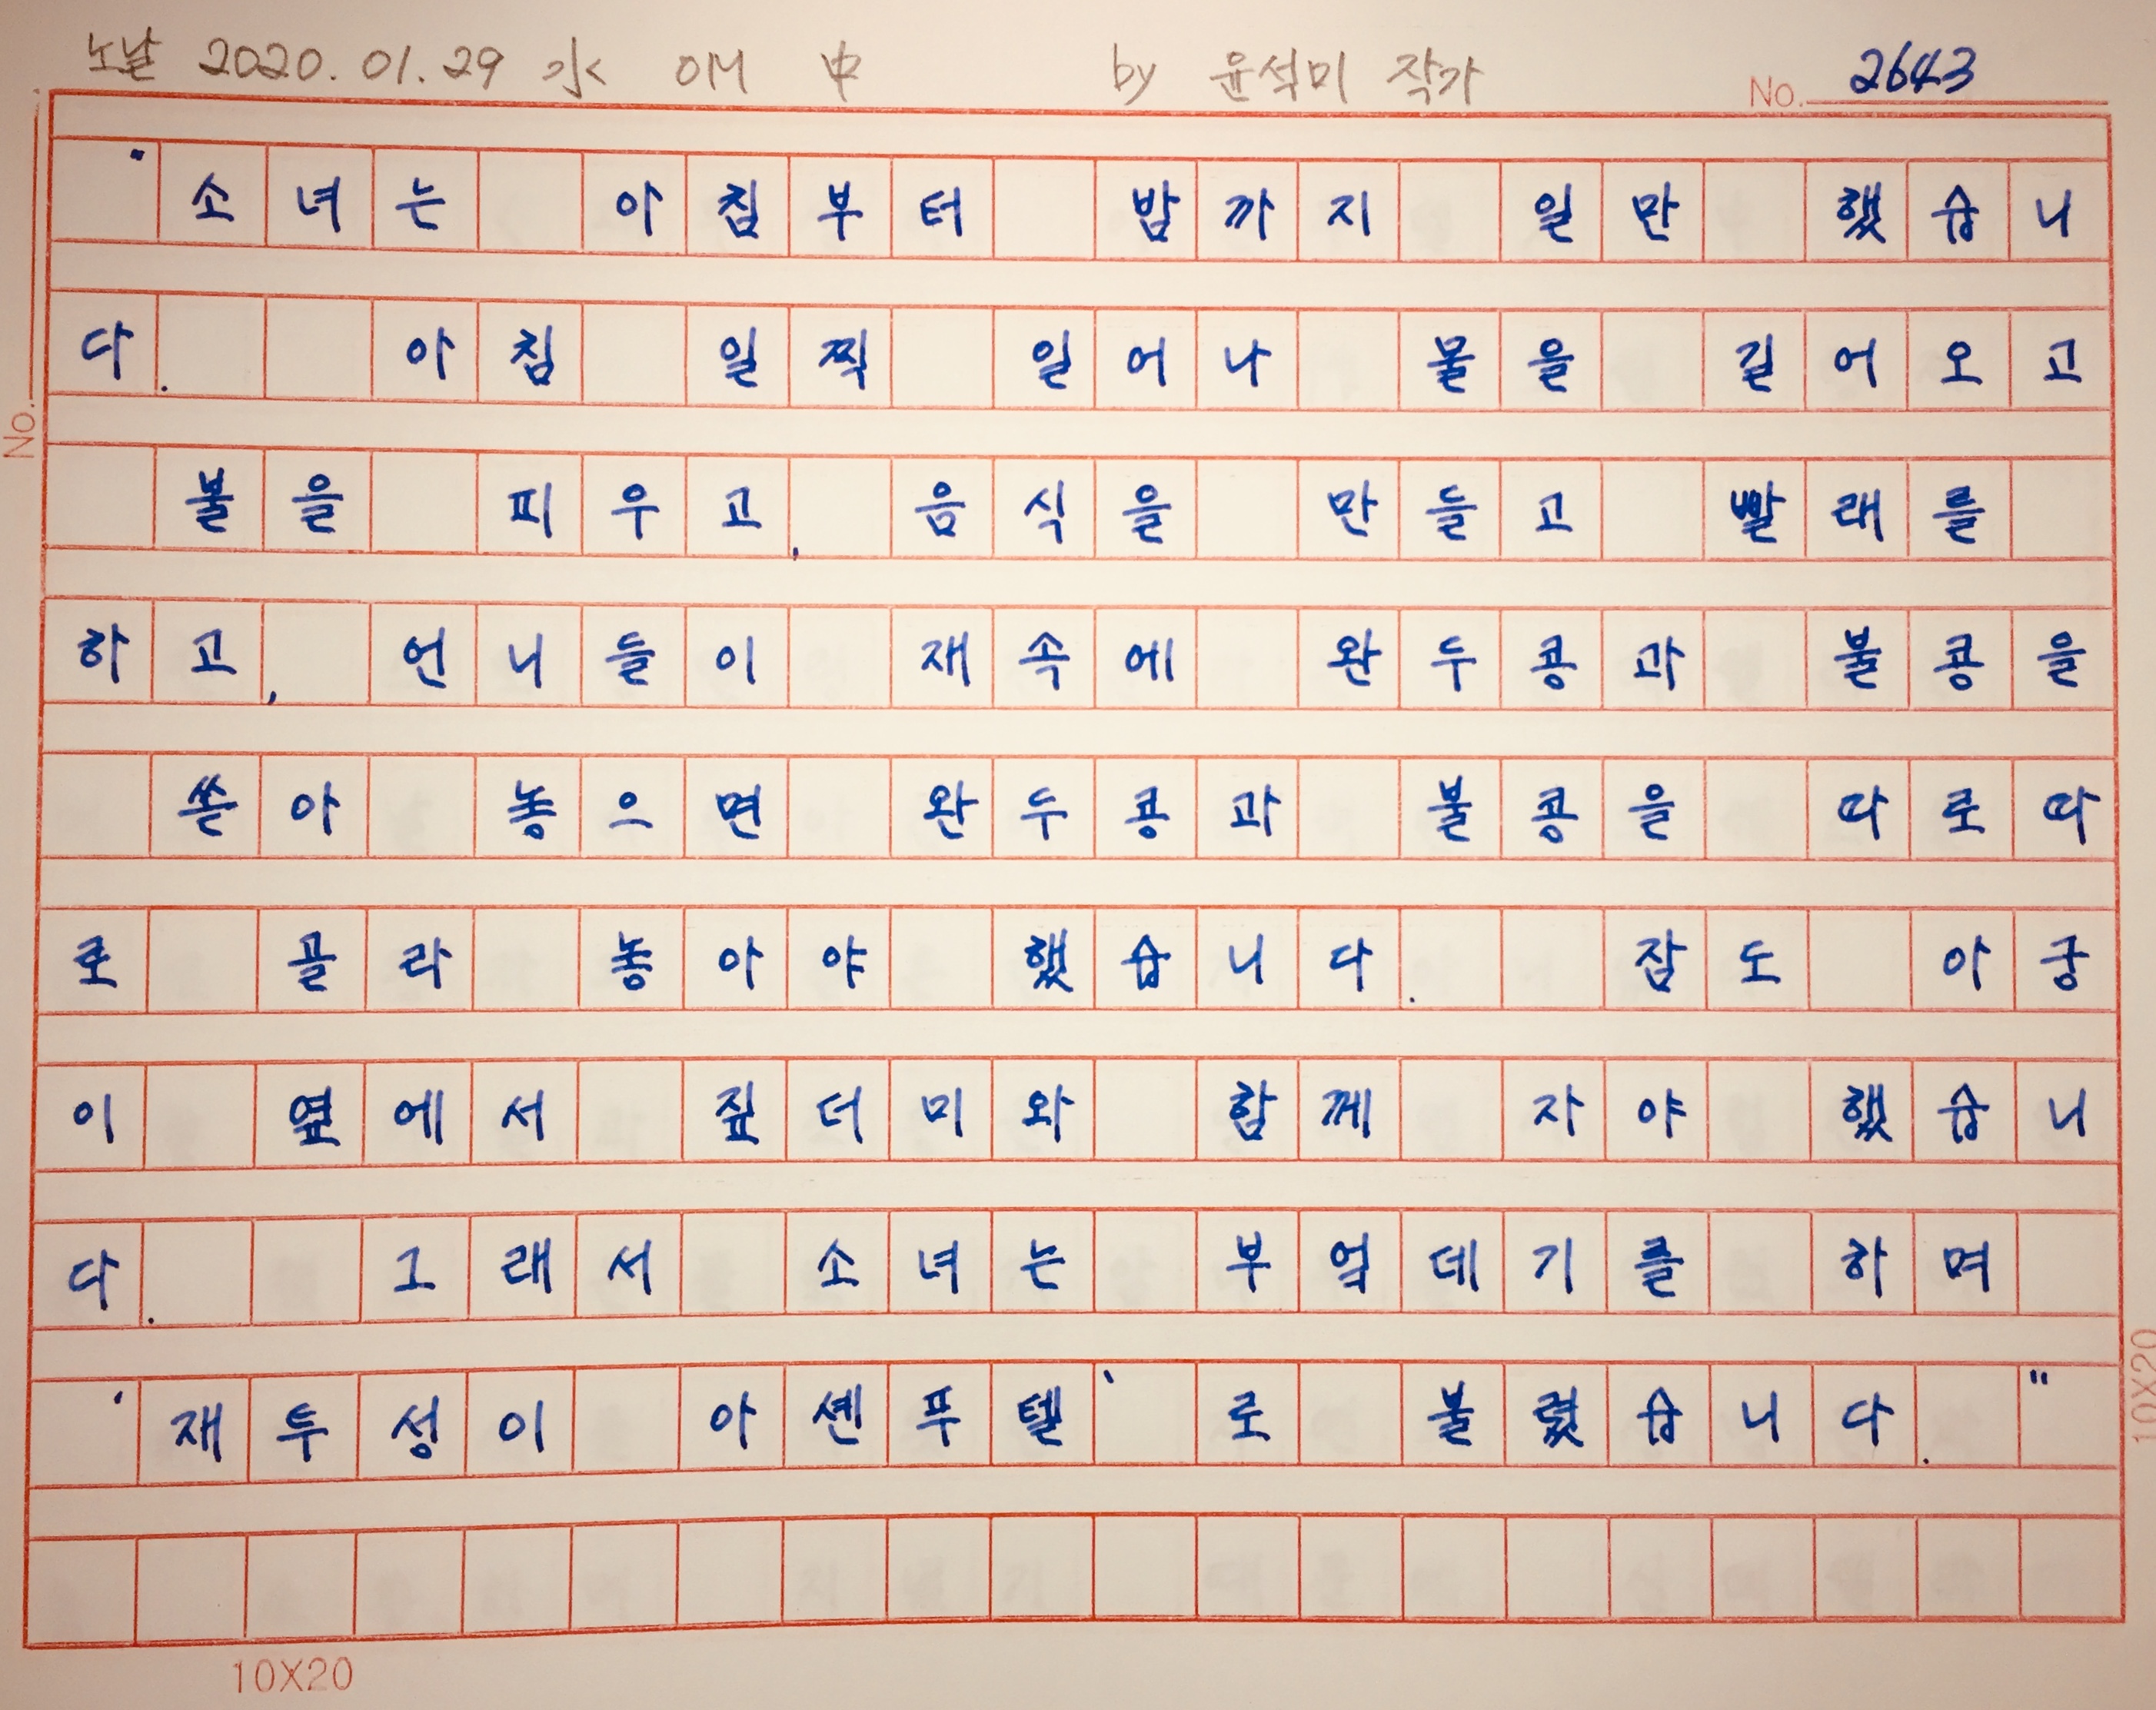 노날 2020.01.29 水 OM 中 by 윤석미 작가 No. 2643
"소녀는 아침부터 밤까지 일만 했습니
다. 아침 일찍 일어나 물을 길어오고
불을 피우고, 음식을 만들고 빨래를
하고, 언니들이 재속에 완두콩과 불콩을
쏟아 놓으면 완두콩과 불콩을 따로따
로 골라 놓아야 했습니다. 잠도 아궁
이 옆에서 짚더미와 함께 자야 했습니
다. 그래서 소녀는 부엌데기를 하며
'재투성이 아셴푸텔'로 불렸습니다."
No.
10X20
10X20